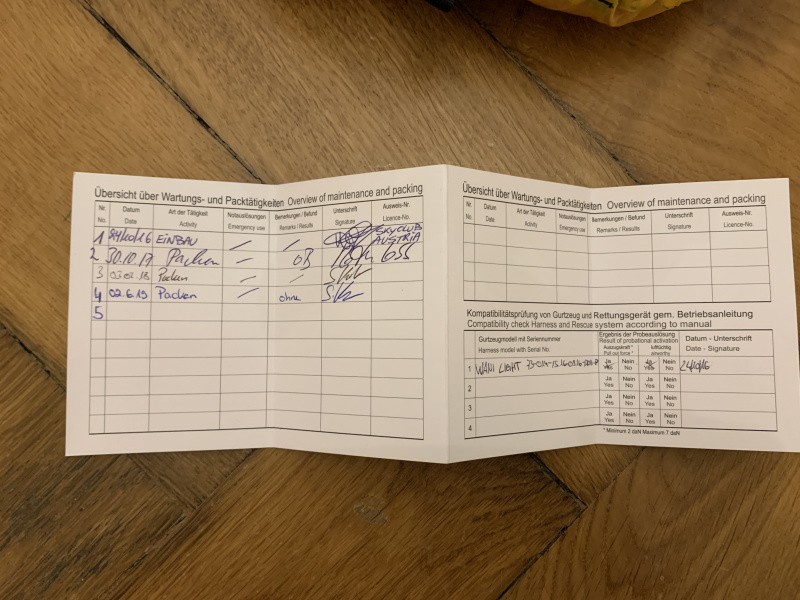 Übersicht über Wartungs- und Packtätigkeiten Overview of maintenance and packing
Nr. Datum Art der Tätigkeit Notauslösungen Bemerkungen / Befund Unterschrift Ausweis-Nr.
No. Date Activity Emergency use Remarks / Results Signature Licence-No.
1 24/10/16 EINBAU / / SKYCLUB AUSTRIA
2 30.10.17 Packen / oB 655
3 03.02.18 Packen / /
4 02.6.19 Packen / ohne
5
Übersicht über Wartungs- und Packtätigkeiten Overview of maintenance and packing
Nr. Datum Art der Tätigkeit Notauslösungen Bemerkungen / Befund Unterschrift Ausweis-Nr.
No. Date Activity Emergency use Remarks / Results Signature Licence-No.
Kompatibilitätsprüfung von Gurtzeug und Rettungsgerät gem. Betriebsanleitung
Compatibility check Harness and Rescue system according to manual
Gurtzeugmodell mit Seriennummer Ergebnis der Probeauslösung Datum - Unterschrift
Harness model with Serial No. Result of probational activation Date - Signature
Auszugskraft * lufttüchtig
Pull out force * airworthy
1 WANI LIGHT Ja Nein Ja Nein 24/10/16
Yes No Yes No
2 Ja Nein Ja Nein
Yes No Yes No
3 Ja Nein Ja Nein
Yes No Yes No
4 Ja Nein Ja Nein
Yes No Yes No
* Minimum 2 daN Maximum 7 daN